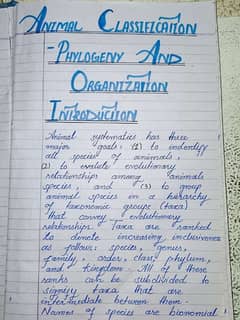 Animal Classification
- Phylogeny And
Organization
Introduction
Animal systematics has three
major goals: (1) to indentify
all species of animals,
(2) to evalute evolutionary
relationships among animals
species, and (3) to group
animal species in a hierarchy
of taxonomic groups (taxa)
that convey evolutionary
relationships. Taxa are ranked
to denote increasing inclusiveness
as follows: species, genus,
family, order, class, phylum,
and kingdom. All of these
ranks can be subdivided to
signify taxa that are
intermediate between them.
Names of species are binomial